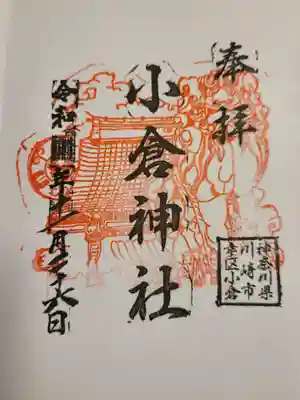 奉拝
小倉神社
令和四年十一月二十六日
神奈川県
川崎市
幸区小倉